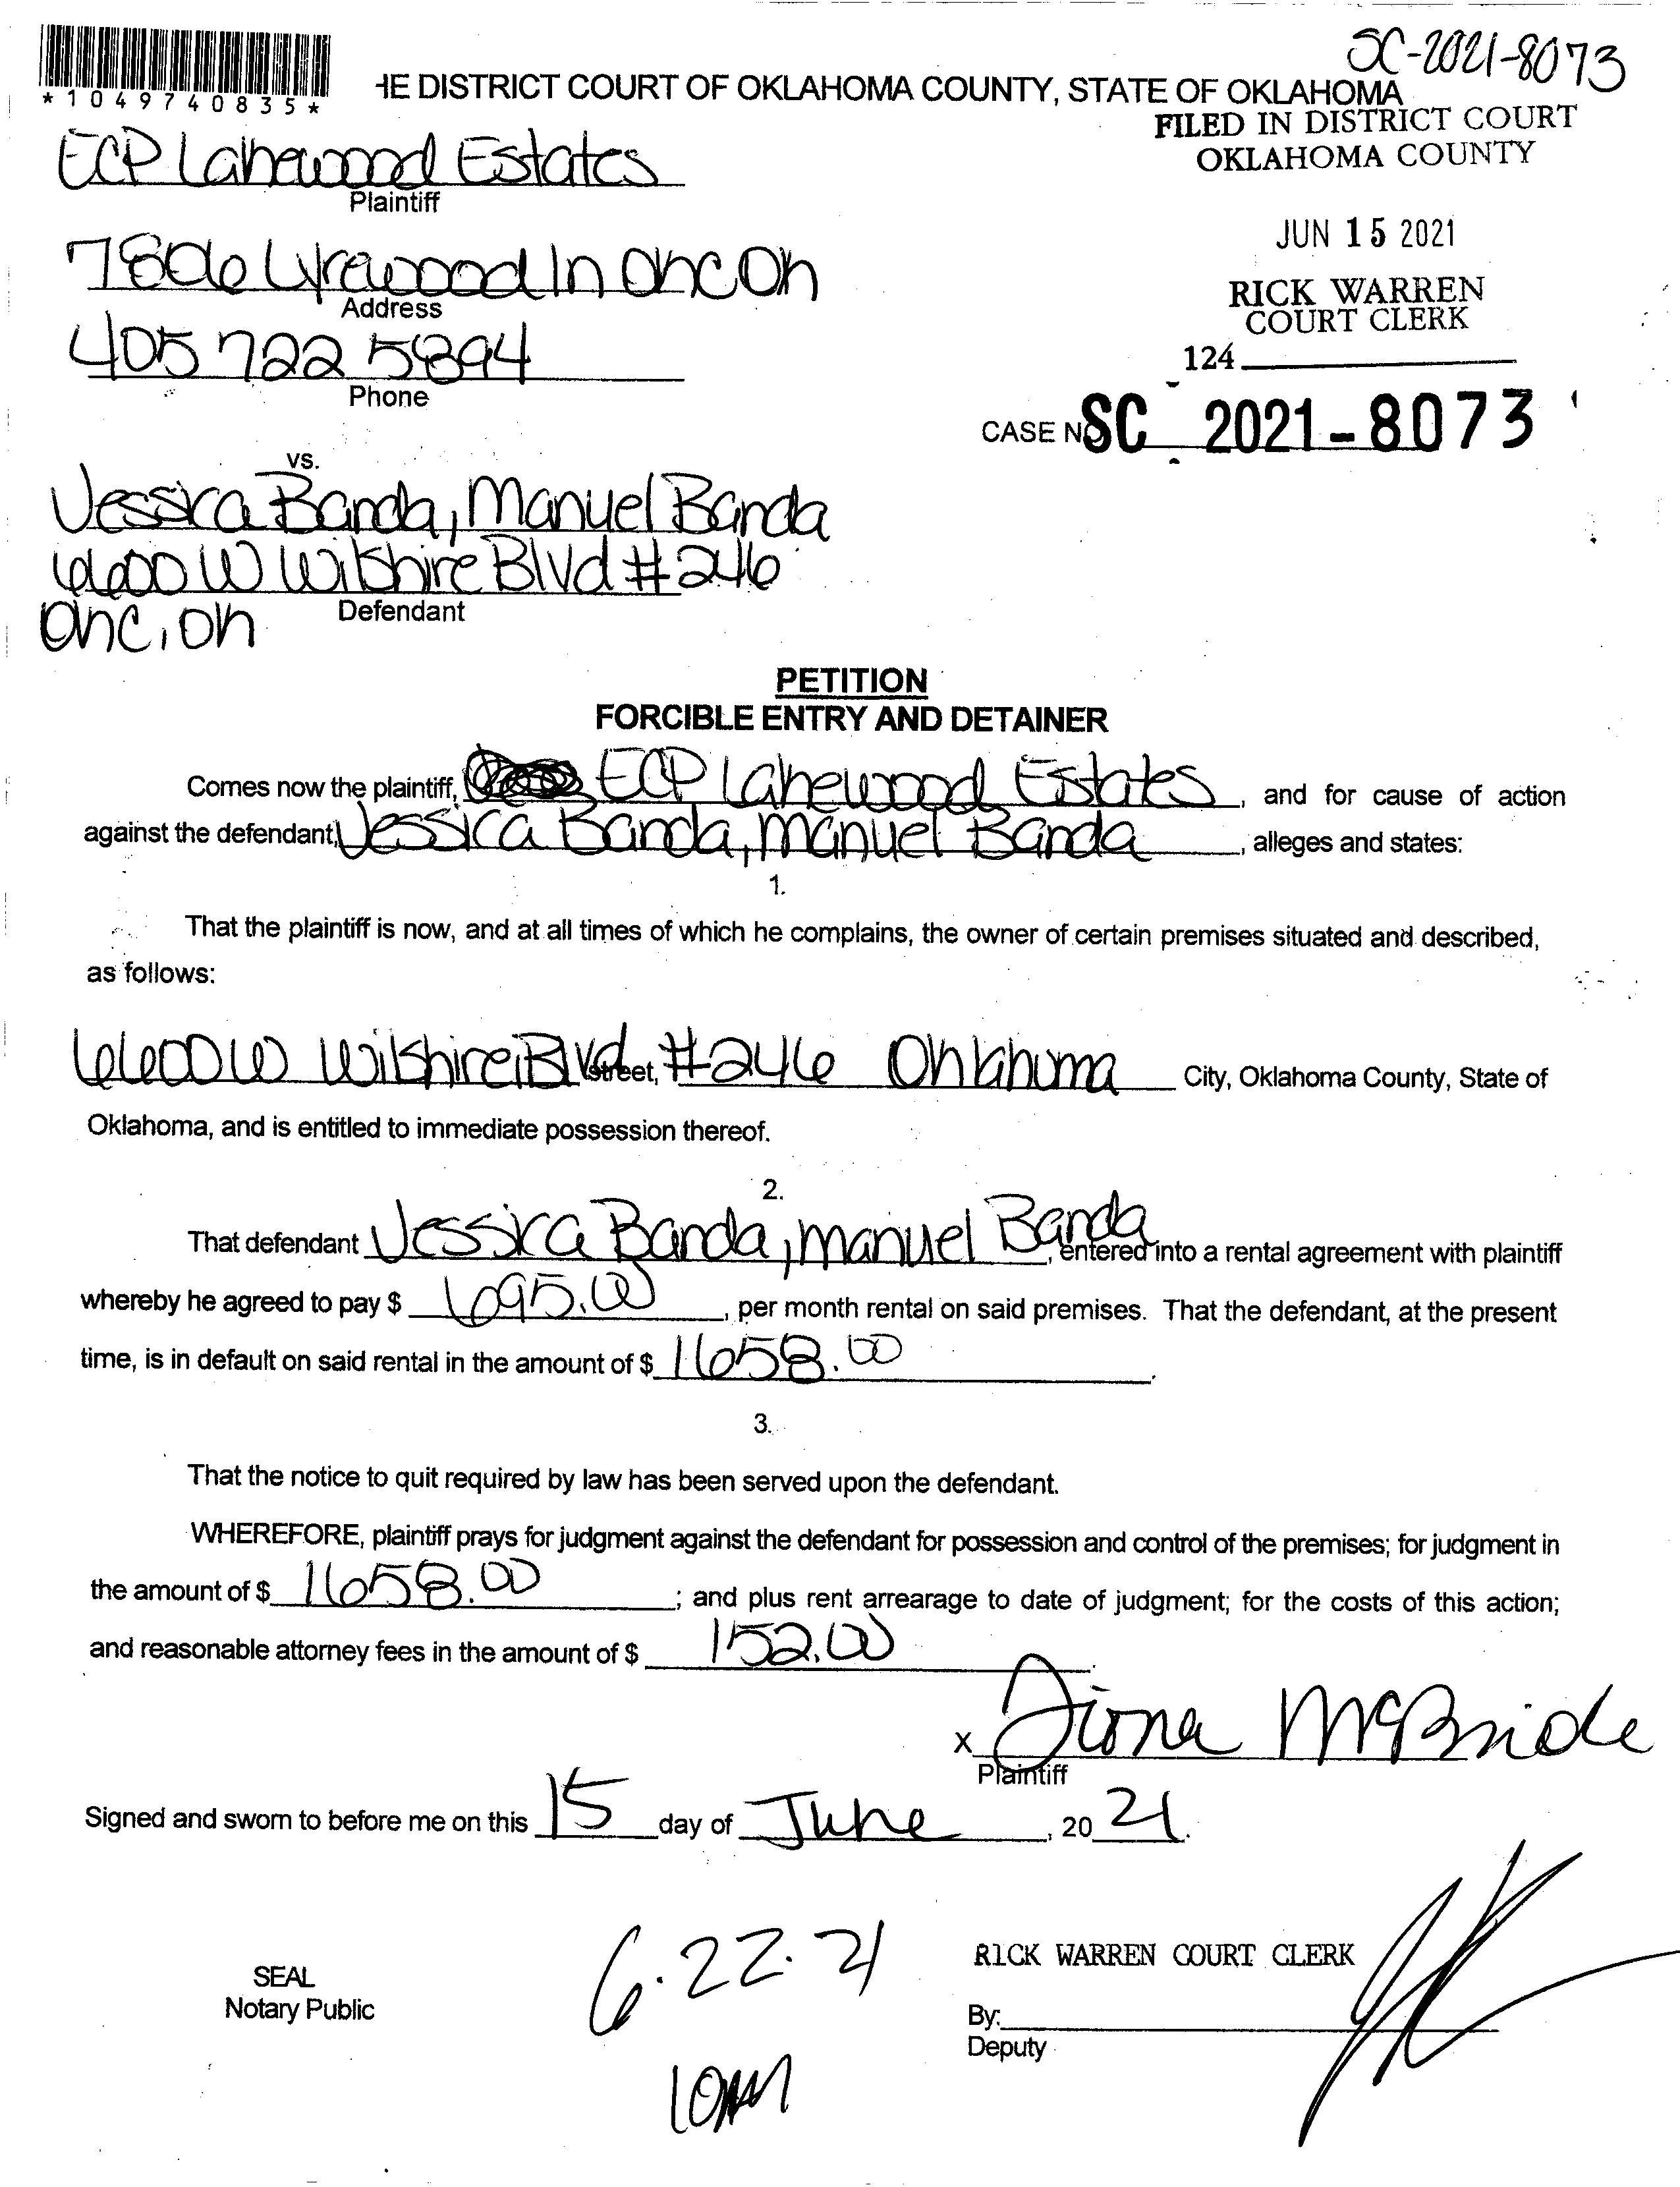 SC-2021-8073
*1049740835*
HE DISTRICT COURT OF OKLAHOMA COUNTY, STATE OF OKLAHOMA
FILED IN DISTRICT COURT
OKLAHOMA COUNTY
ECP Lakewood Estates
Plaintiff
JUN 15 2021
7806 Lyrewood ln OKC OK
Address
RICK WARREN
COURT CLERK
405 722 5894
Phone
124
CASE NO SC 2021-8073
vs.
Jessica Banda, Manuel Banda
6600 W Wilshire Blvd #246
Defendant
OKC, OK
PETITION
FORCIBLE ENTRY AND DETAINER
Comes now the plaintiff, ECP Lakewood Estates, and for cause of action
against the defendant, Jessica Banda, Manuel Banda, alleges and states:
1.
That the plaintiff is now, and at all times of which he complains, the owner of certain premises situated and described,
as follows:
6600 W Wilshire Blvd street, #246 Oklahoma City, Oklahoma County, State of
Oklahoma, and is entitled to immediate possession thereof.
2.
That defendant Jessica Banda, Manuel Banda, entered into a rental agreement with plaintiff
whereby he agreed to pay $ 695.00, per month rental on said premises. That the defendant, at the present
time, is in default on said rental in the amount of $ 1658.00.
3.
That the notice to quit required by law has been served upon the defendant.
WHEREFORE, plaintiff prays for judgment against the defendant for possession and control of the premises; for judgment in
the amount of $ 1658.00; and plus rent arrearage to date of judgment; for the costs of this action;
and reasonable attorney fees in the amount of $ 152.00.
x McBride
Plaintiff
Signed and sworn to before me on this 15 day of June, 20 21.
6.22.21
10AM
SEAL
Notary Public
RICK WARREN COURT CLERK
By:
Deputy